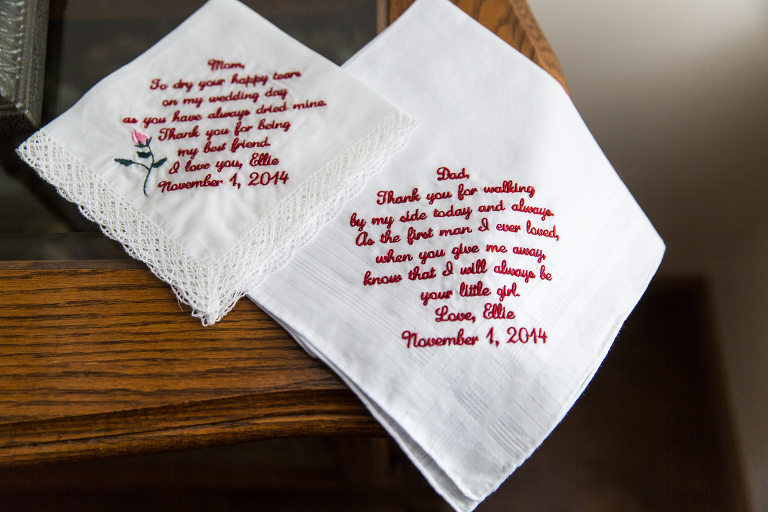 Mom,
To dry your happy tears
on my wedding day
as you have always dried mine.
Thank you for being
my best friend.
I love you, Ellie
November 1, 2014
Dad,
Thank you for walking
by my side today and always.
As the first man I ever loved,
when you give me away,
know that I will always be
your little girl.
Love, Ellie
November 1, 2014